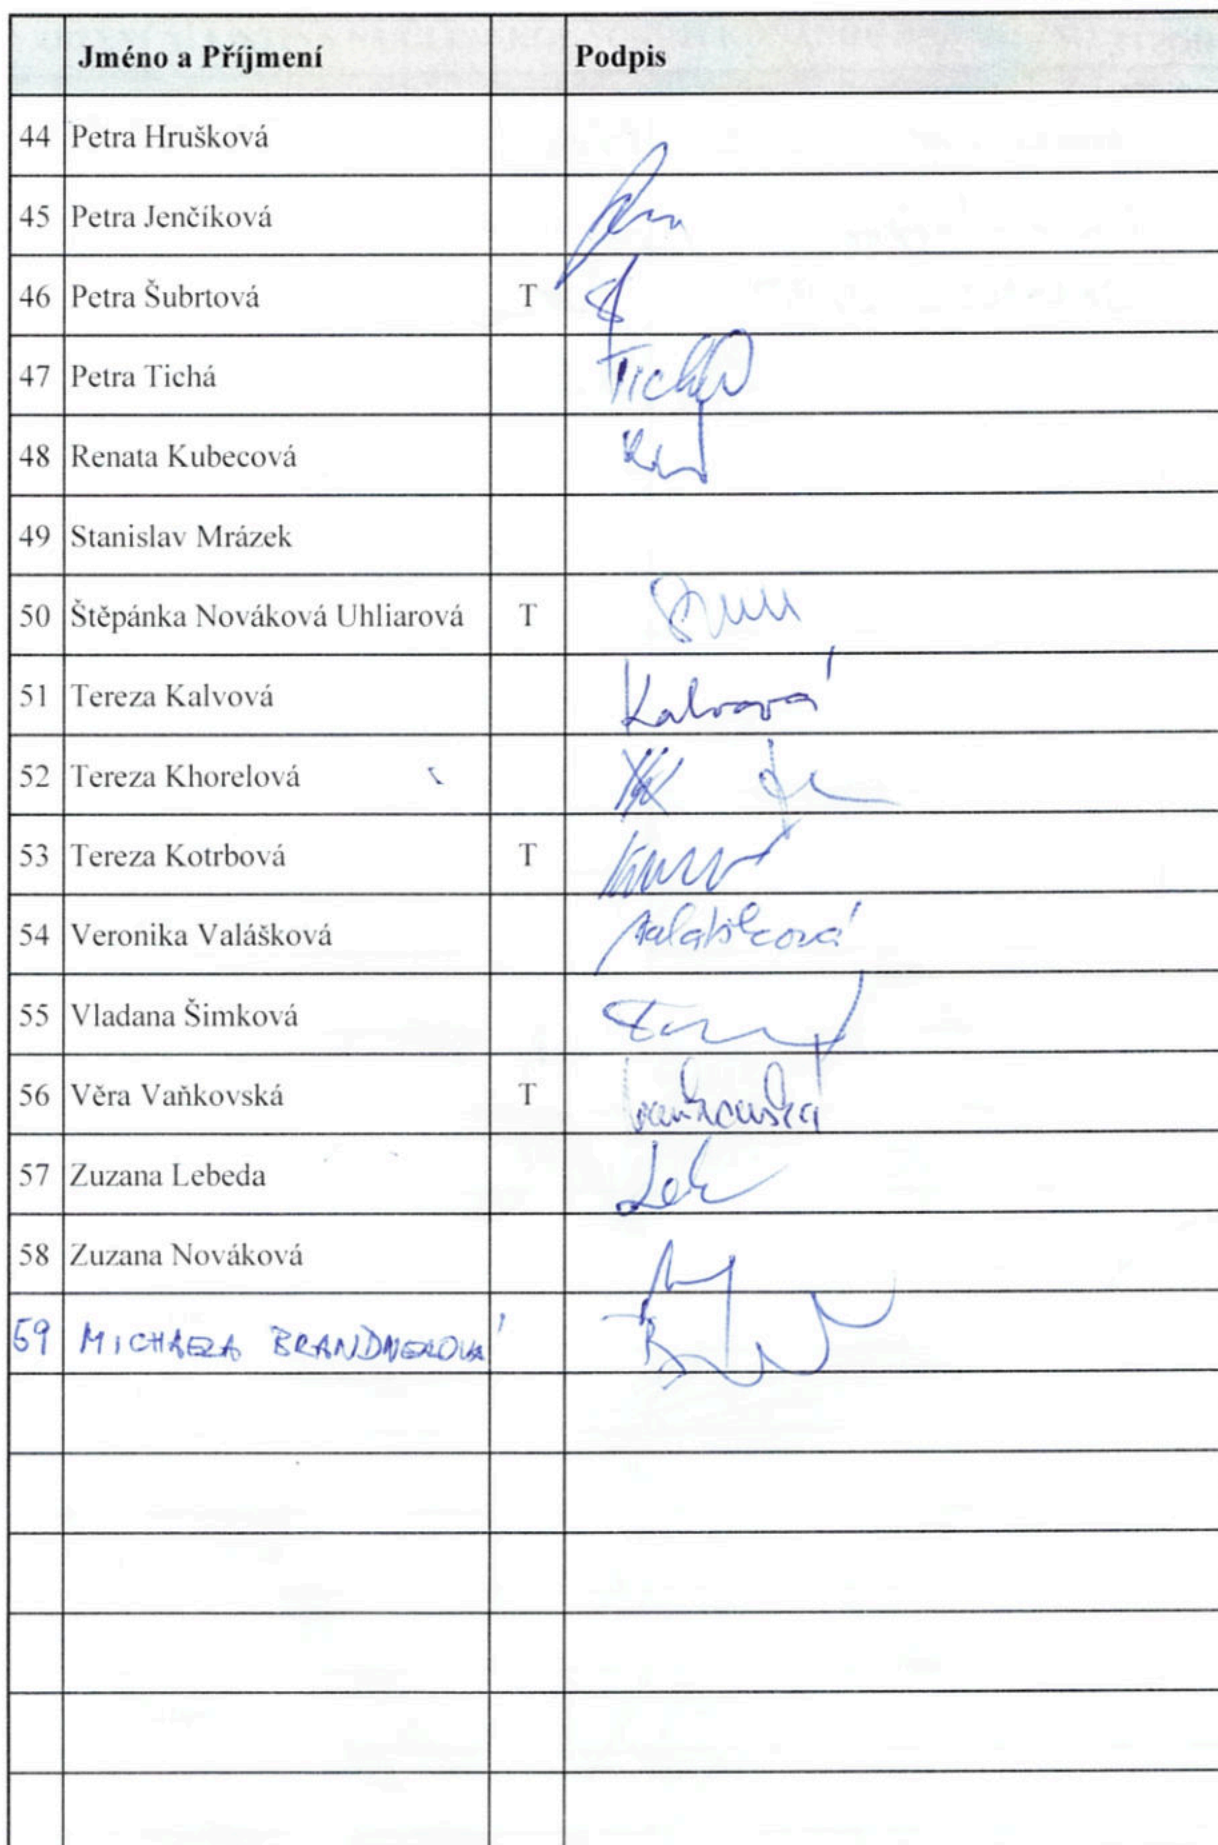 Jméno a Příjmení Podpis
44 Petra Hrušková
45 Petra Jenčíková
46 Petra Šubrtová T
47 Petra Tichá Tichá
48 Renata Kubecová
49 Stanislav Mrázek
50 Štěpánka Nováková Uhliarová T
51 Tereza Kalvová Kalvová
52 Tereza Khorelová
53 Tereza Kotrbová T
54 Veronika Valášková Valášková
55 Vladana Šimková
56 Věra Vaňkovská T Vaňkovská
57 Zuzana Lebeda
58 Zuzana Nováková
59 MICHAELA BRANDNEROVÁ